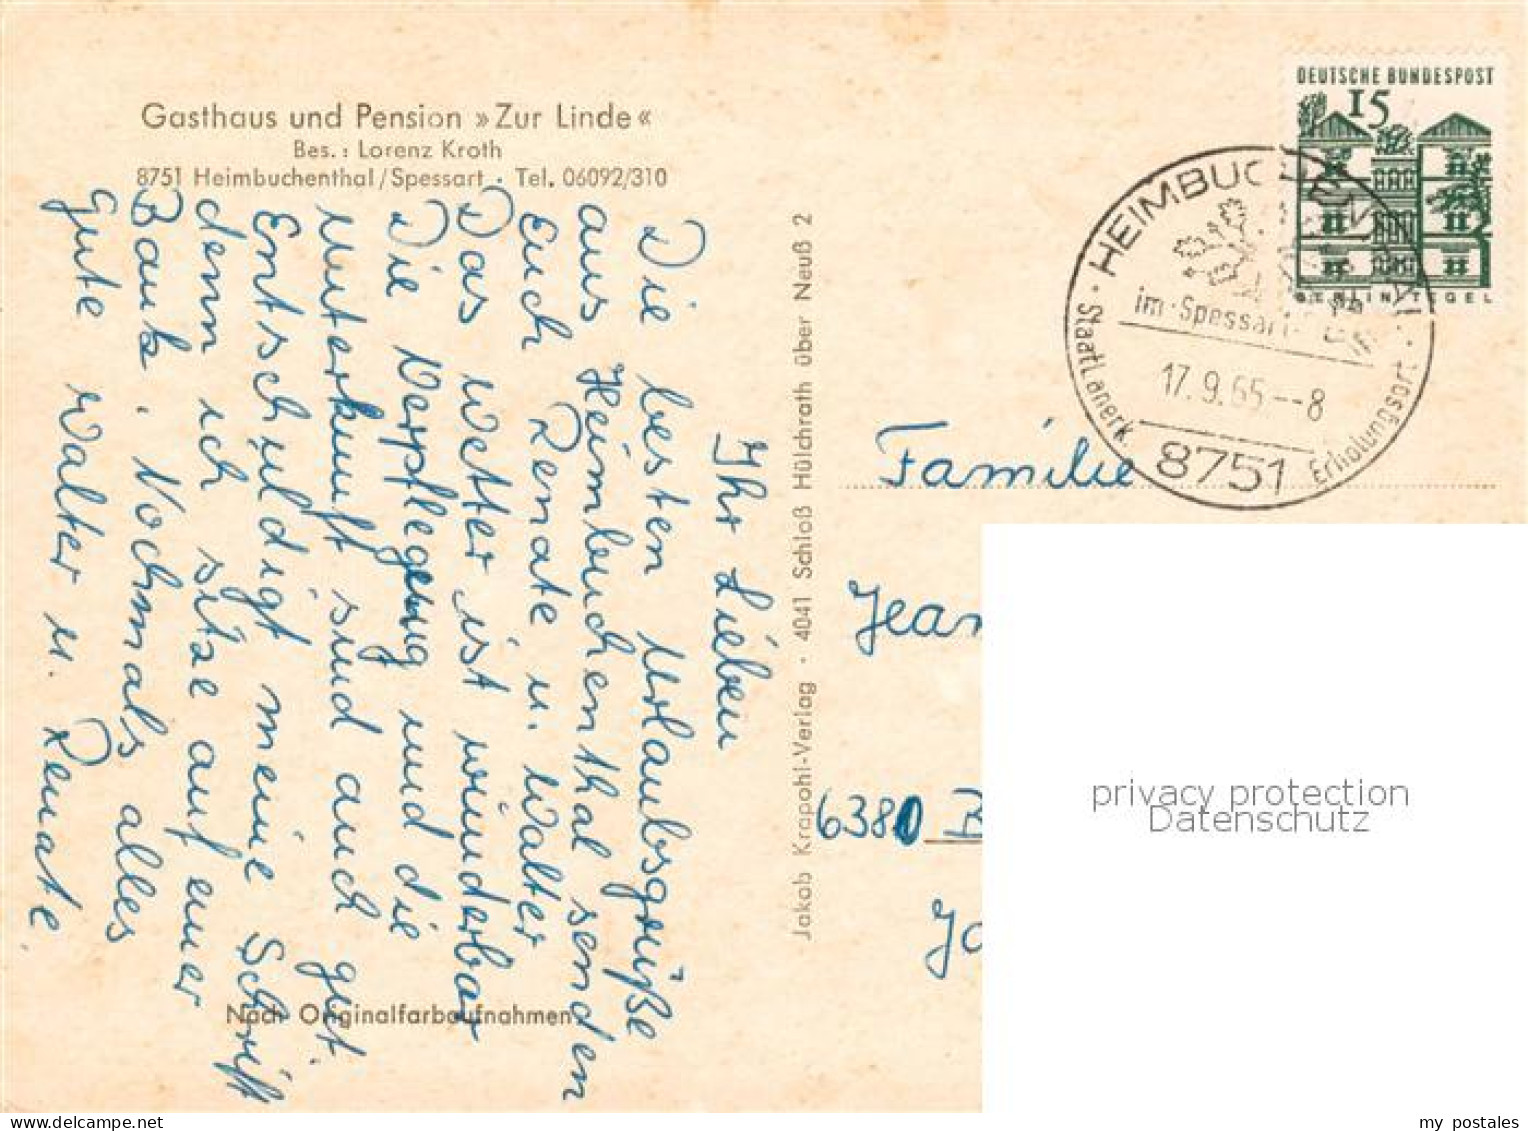 Gasthaus und Pension »Zur Linde«
Bes.: Lorenz Kroth
8751 Heimbuchenthal/Spessart · Tel. 06092/310
Ihr Lieben
Die besten Urlaubsgrüße
aus Heimbuchenthal senden
Euch Renate u. Walter
Das Wetter ist wunderbar
Die Verpflegung und die
Unterkunft sind auch gut.
Entschuldigt meine Schrift
denn ich sitze auf einer
Bank. Nochmals alles
Gute Walter u. Renate.
Nach Originalfarbaufnahmen
Jakob Krapohl-Verlag · 4041 Schloß Hülchrath über Neuß 2
DEUTSCHE BUNDESPOST
15
BERLIN TEGEL
HEIMBUCHENTHAL
im Spessart
17.9.65--8
Staatl. anerk. Erholungsort
8751
Familie
Jean
6380 B
Jo
privacy protection
Datenschutz
my postales